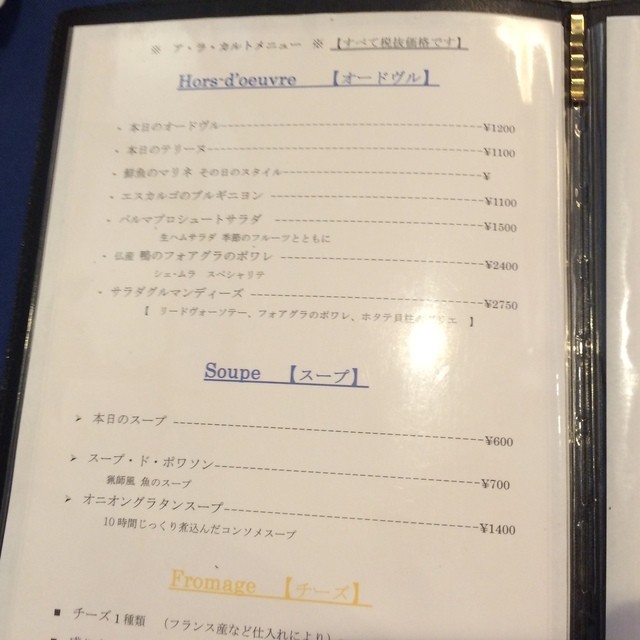 ※ ア・ラ・カルトメニュー ※ 【すべて税抜価格です】
Hors-d'oeuvre 【オードヴル】
- 本日のオードヴル ¥1200
- 本日のテリーヌ ¥1100
- 鮮魚のマリネ その日のスタイル ¥
- エスカルゴのブルギニヨン ¥1100
- パルマプロシュートサラダ ¥1500
生ハムサラダ 季節のフルーツとともに
- 仏産 鴨のフォアグラのポワレ ¥2400
シェ・ムラ スペシャリテ
- サラダグルマンディーズ ¥2750
【 リードヴォーソテー、フォアグラのポワレ、ホタテ貝 】
Soupe 【スープ】
➢ 本日のスープ ¥600
➢ スープ・ド・ポワソン ¥700
猟師風 魚のスープ
➢ オニオングラタンスープ ¥1400
10時間じっくり煮込んだコンソメスープ
Fromage 【チーズ】
■ チーズ1種類 (フランス産など仕入れにより)